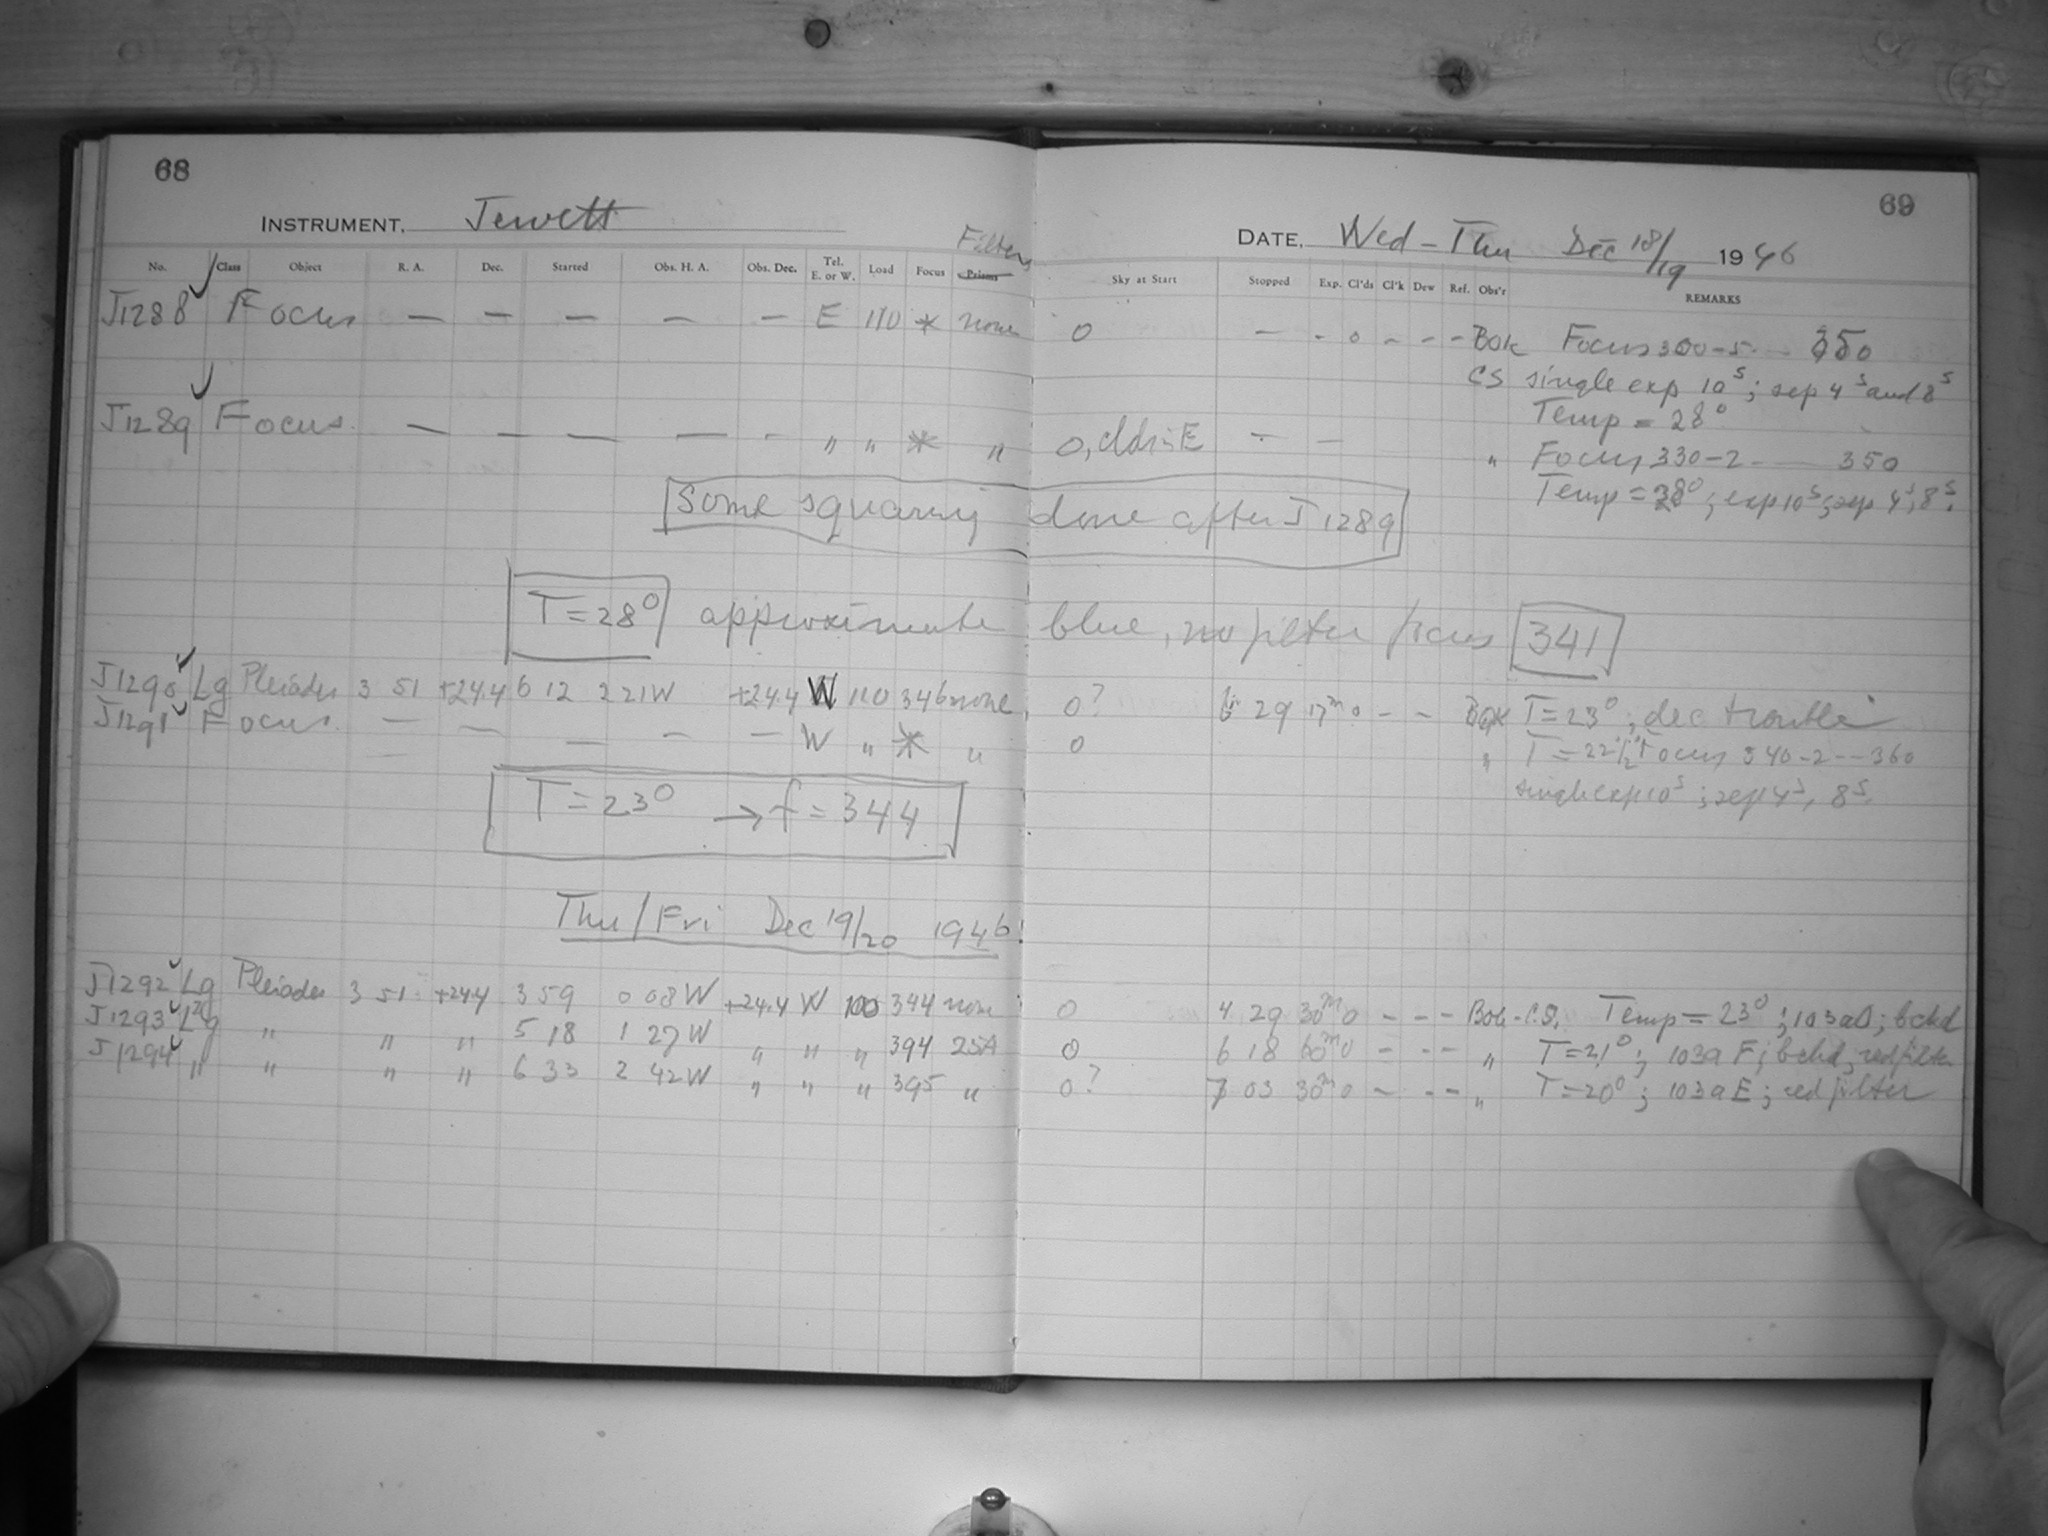 68
INSTRUMENT. Jewett
No. Class Object R. A. Dec. Started Obs. H. A. Obs. Dec. Tel. E. or W. Load Focus Prisms Filters
J1288 Focus — — — — — E 110 * none
J1289 Focus — — — — - " " * "
Some squaring done after J1289
T=28° approximate blue, no filter focus 341
J1290 Lg Pleiades 3 51 +24.4 6 12 2 21W +24.4 W 110 346 none
J1291 Focus — — — - — W " * "
T=23° → f=344
Thu/Fri Dec 19/20 1946
J1292 Lg Pleiades 3 51 +24.4 3 59 0 08W +24.4 W 100 344 none
J1293 L2g " " " 5 18 1 27W " " " 394 25A
J1294 " " " " 6 33 2 42W " " " 395 "
69
DATE. Wed-Thu Dec 18/19 1946
Sky at Start Stopped Exp. Cl'ds Cl'k Dew Ref. Obs'r REMARKS
0 — - 0 - - - Bok Focus 300-5-- 350
CS single exp 10s; sep 4s and 8s
Temp = 28°
0, clds in E — — " Focus 330-2 — 350
Temp = 28°; exp 10s; sep 4s, 8s.
0? 6 29 17m 0 - - Bok T=23°; dec trouble
0 " T=22 1/2° Focus 340-2--360
single exp 10s; sep 4s, 8s.
0 4 29 30m 0 - - - Bok-C.S. Temp=23°; 103aO; bckd
0 6 18 60m 0 - - - " T=21°; 103a F; bckd; red filter
0? 7 03 30m 0 - - - " T=20°; 103a E; red filter